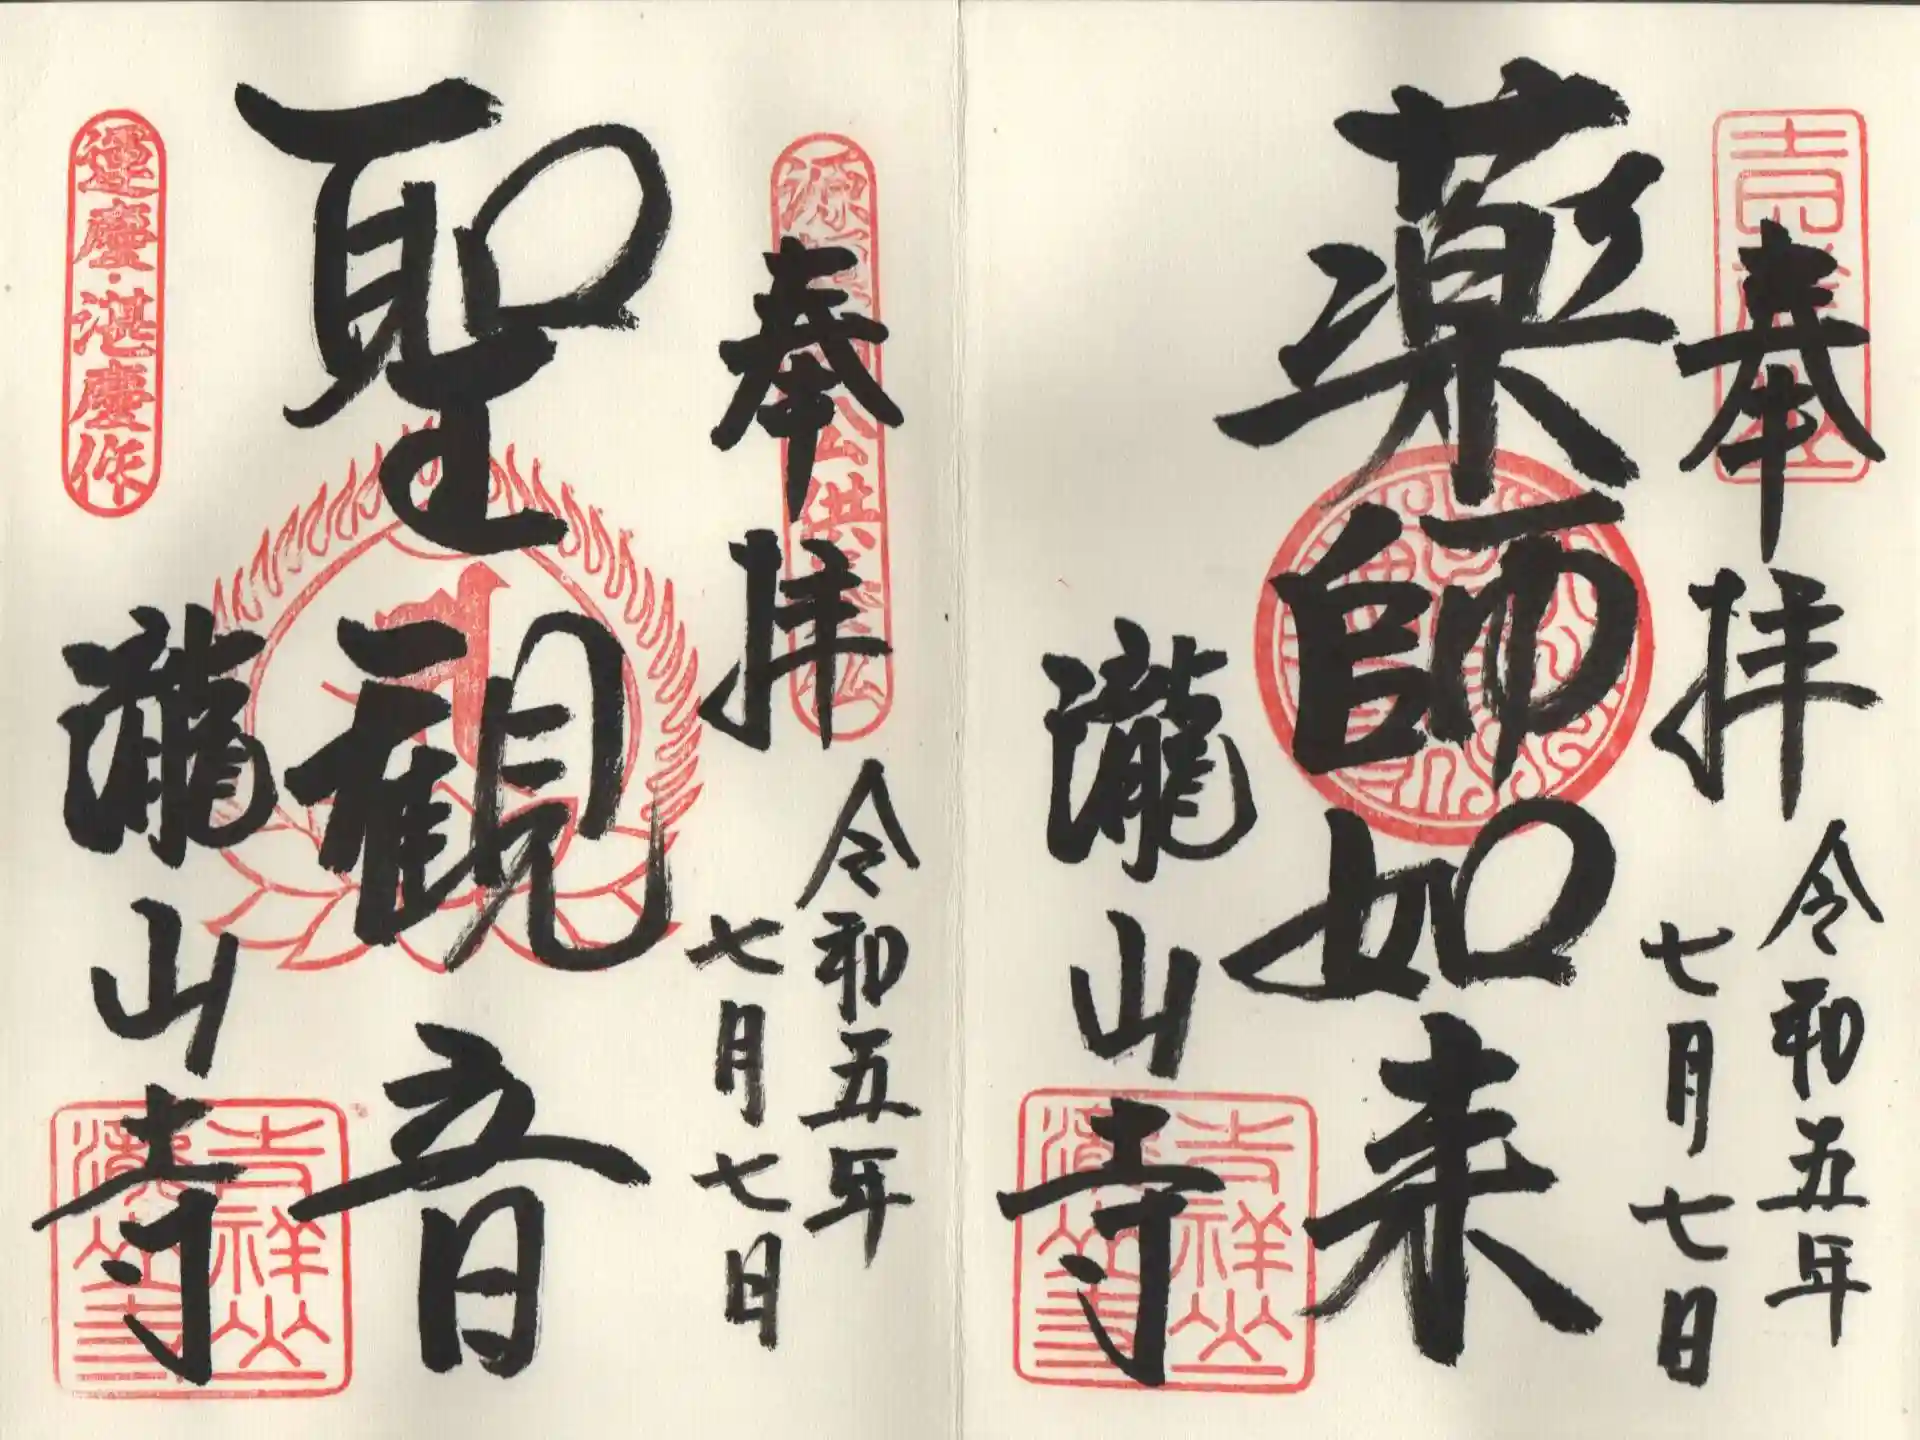 奉拝
令和五年
七月七日
薬師如来
瀧山寺
吉祥山
瀧山寺
奉拝
令和五年
七月七日
聖観音
瀧山寺
運慶・湛慶作
吉祥山
瀧山寺